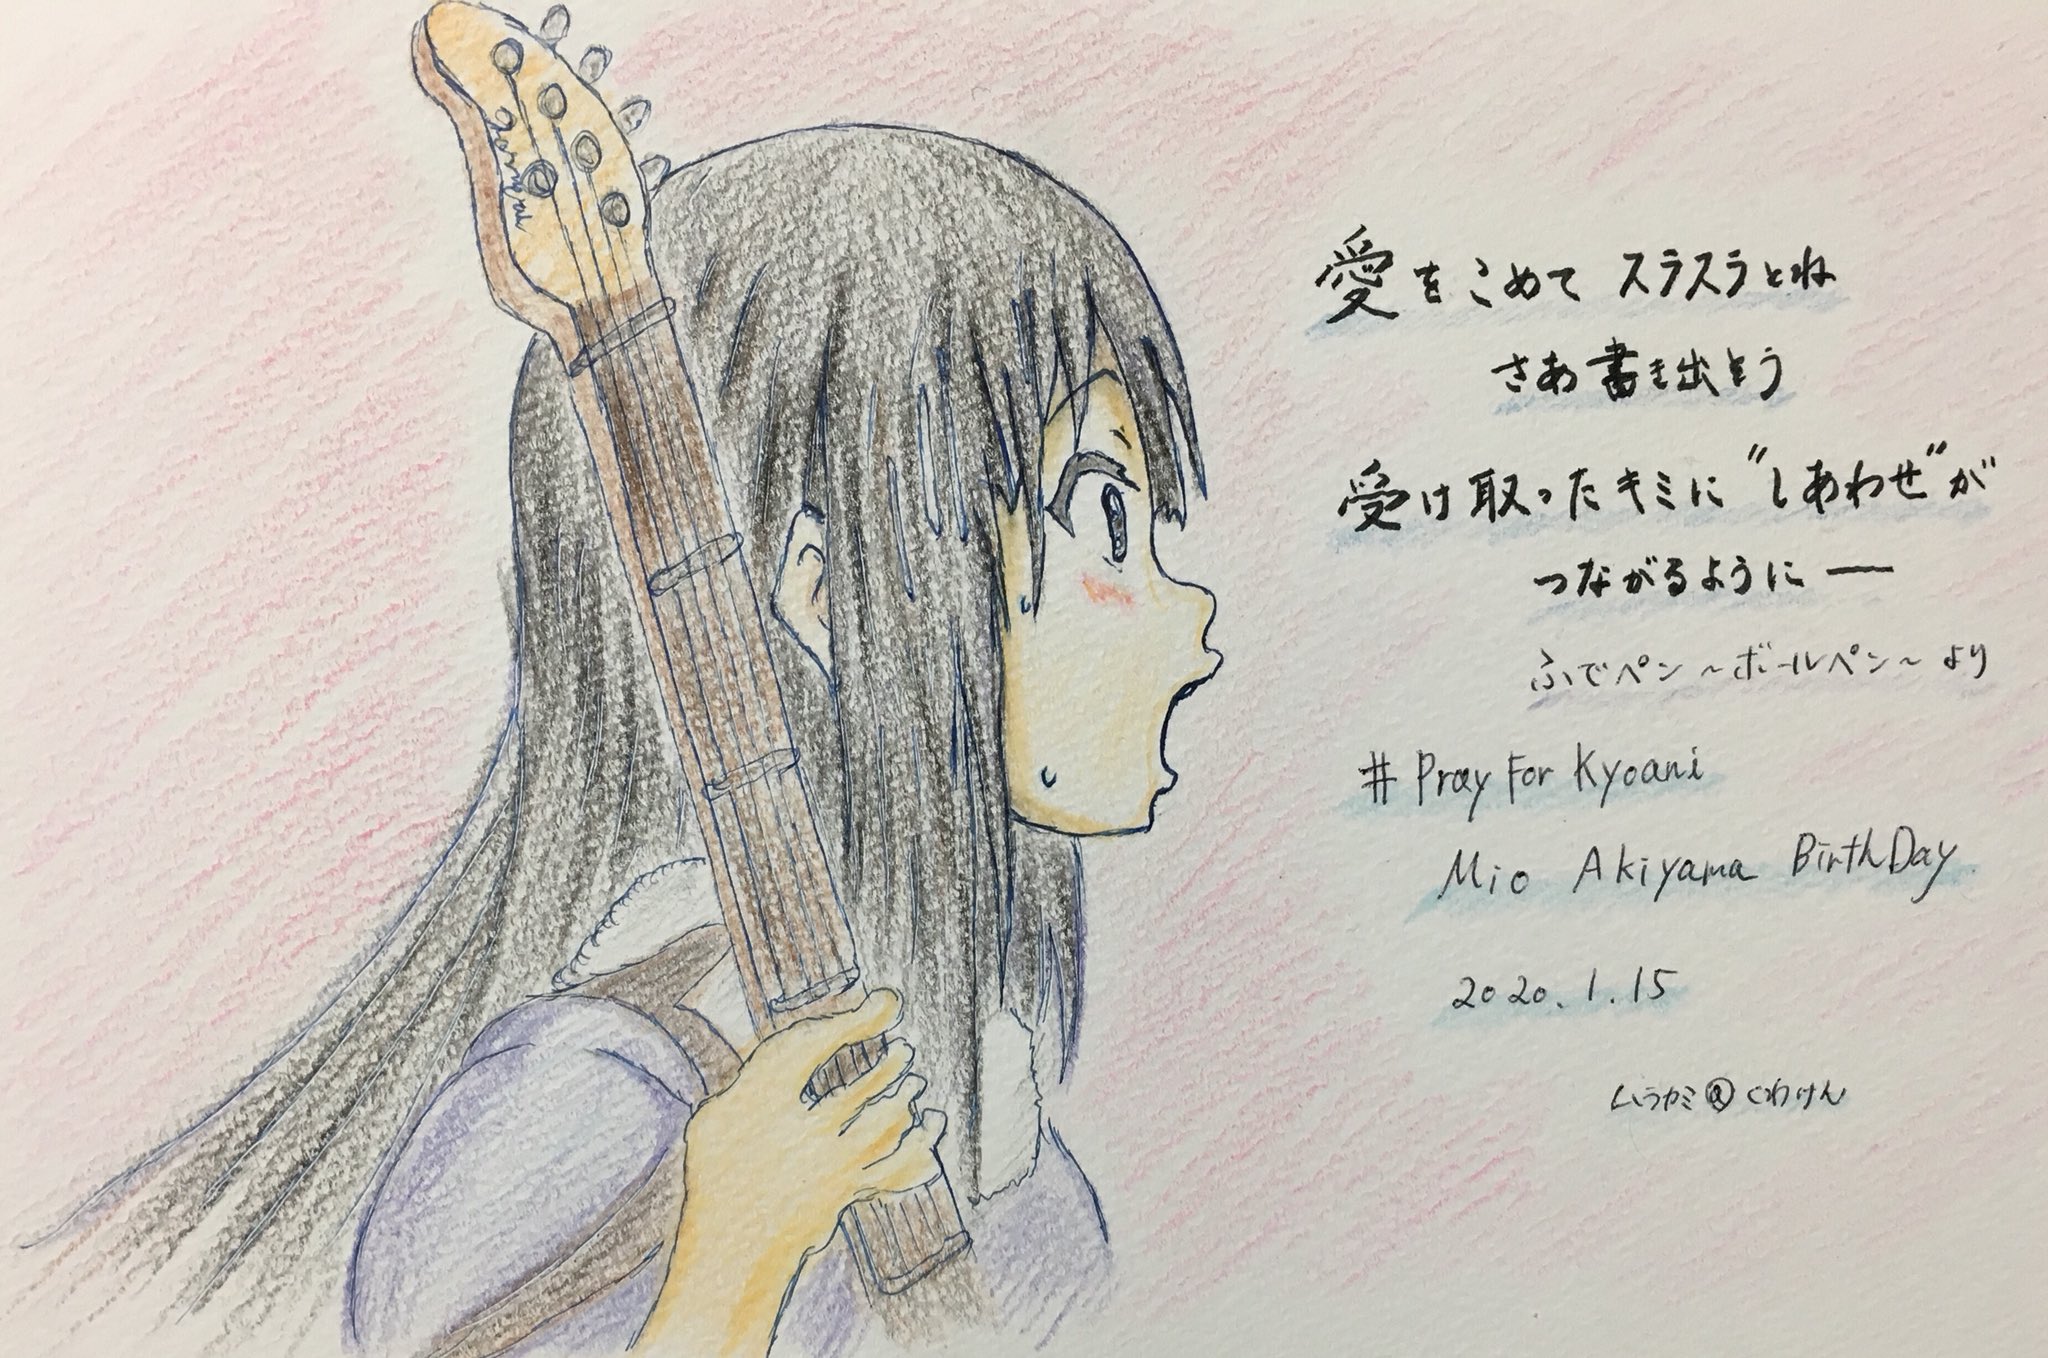 愛をこめて スラスラとね
さあ書き出そう
受け取ったキミに"しあわせ"が
つながるように―
ふでペン~ボールペン~より
#Pray For Kyoani
Mio Akiyama BirthDay
2020.1.15
ムラカミ@くわけん